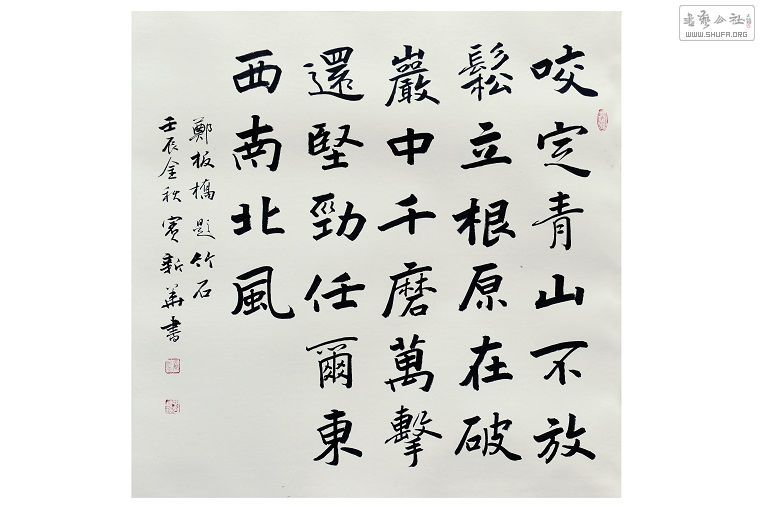 咬定青山不放
鬆立根原在破
巖中千磨萬擊
還堅勁任爾東
西南北風
鄭板橋題竹石
壬辰金秋新華書
書藝公社
WWW.SHUFA.ORG